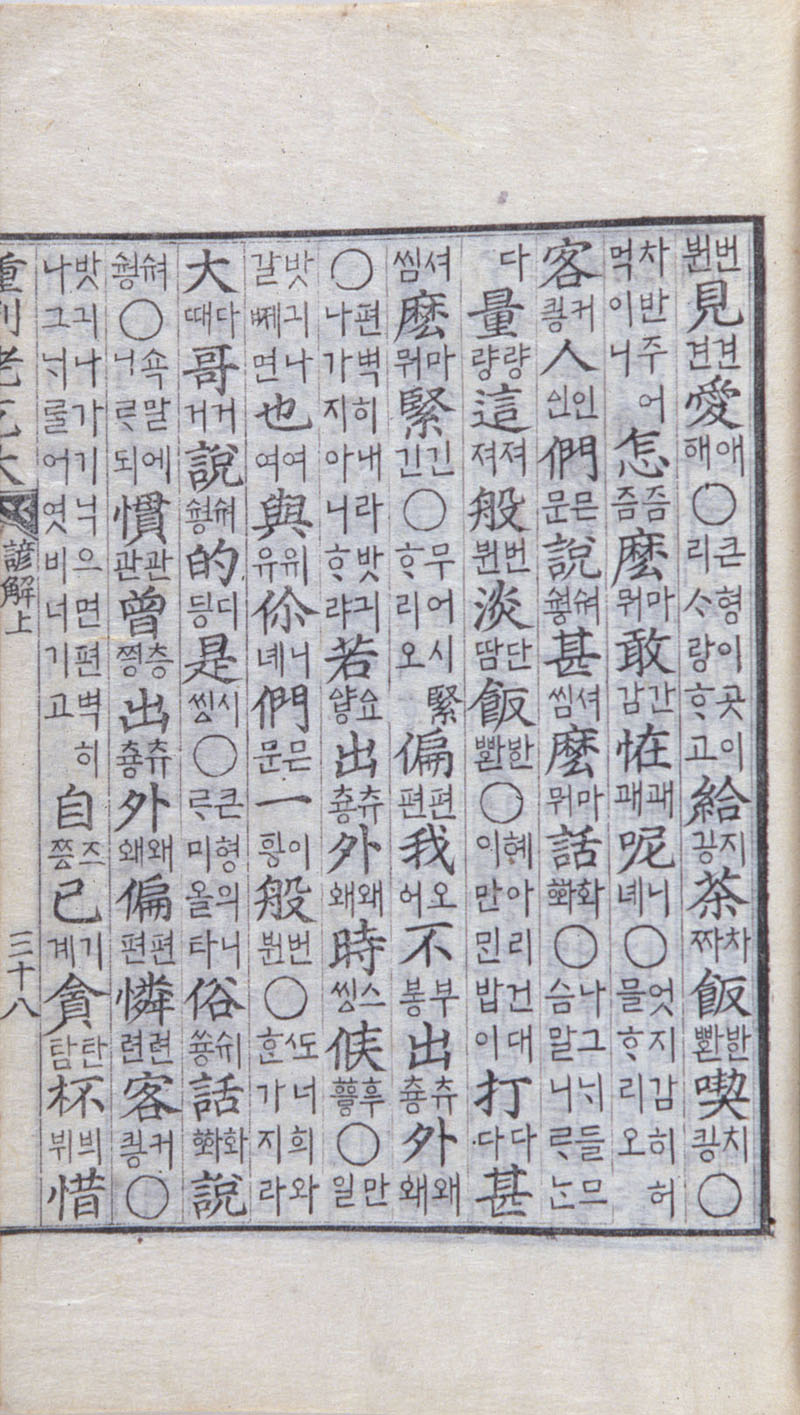 뷘번見견견愛해애○큰형이곳이리ᄉᆞ랑ᄒᆞ고給깅지茶짜차飯뽠반喫킹치○
차반주어먹이니怎즘즘麽뭐마敢감간恠괘괘呢녜니○엇지감히허믈ᄒᆞ리오
客킝커人ᅀᅵᆫ인們문믄說ᄉᆑᇙ숴甚씸셔麽뭐마話ᅘᅪ화○나그ᄂᆡ들므슴말니ᄅᆞᄂᆞᆫ
다量량량這져져般뷘번淡땀단飯뽠반○혜아리건대이만민밥이打다다甚
씸셔麽뭐마緊긴긴○무어시緊ᄒᆞ리오偏편편我어오不붕부出츙츄外왜왜
○편벽히내라밧긔나가지아니ᄒᆞ랴若ᅀᅣᇢ요出츙츄外왜왜時씽스候ᅘᅮᇢ후○만일
밧긔나갈ᄯᅢ면也여여與유위伱녜니們문믄一ᅙᅵᆼ이般뷘번○ᄯᅩ너희와ᄒᆞᆫ가지라
大때다哥거거說ᄉᆑᇙ숴的딍디是씽시○큰형의니ᄅᆞ미올타俗쓩슈話ᅘᅪ화說
ᄉᆑᇙ숴○쇽말에니ᄅᆞ되慣관관曾쯩층出츙츄外왜왜偏편편憐련련客킝커○
밧긔나가기닉으면편벽히나그ᄂᆡᄅᆞᆯ어엿비너기고自쯩즈己계기貪탐탄杯뷔븨惜
重刊老乞大 諺解上 三十八